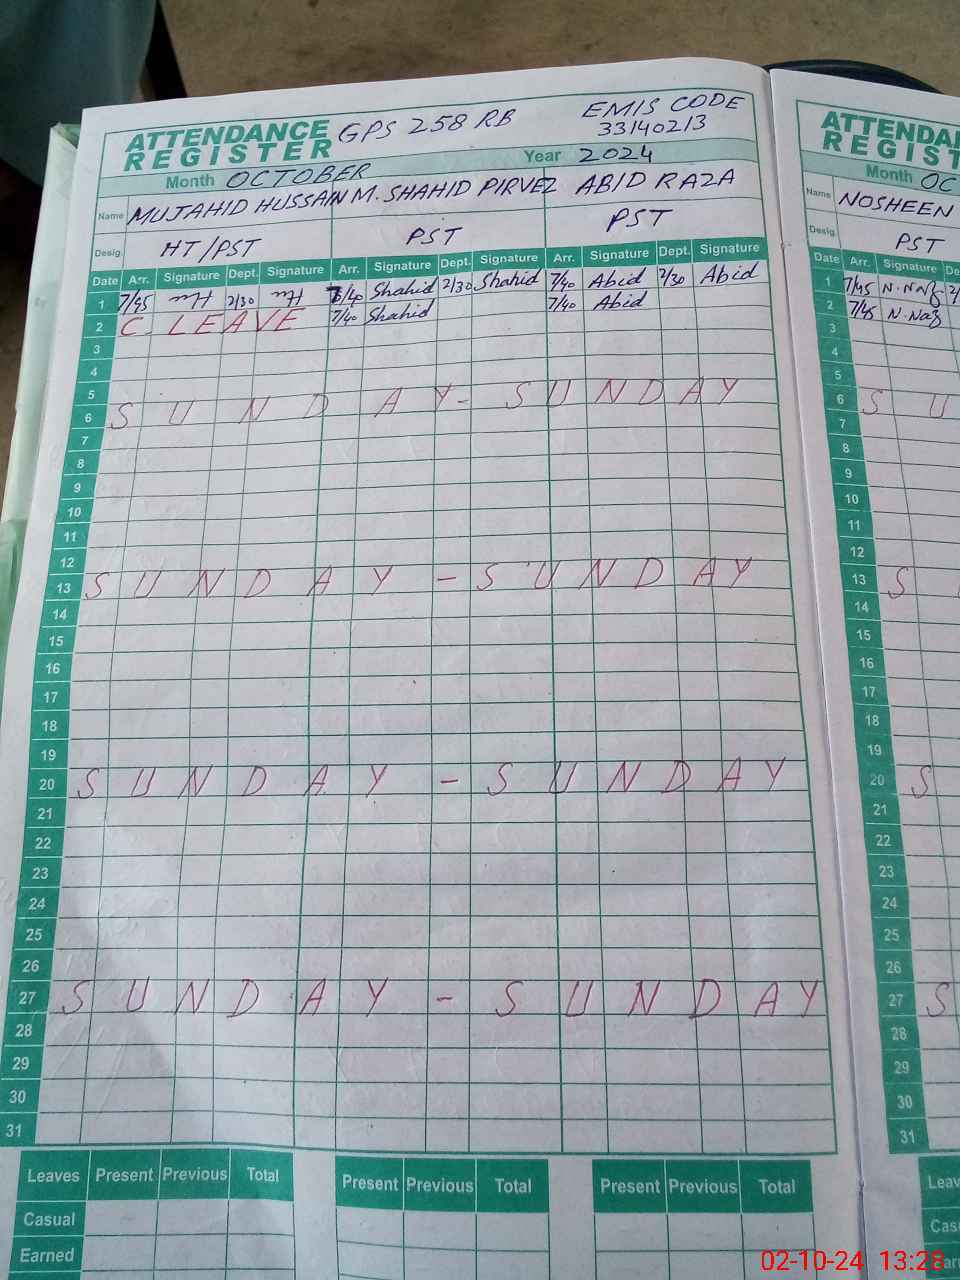 ATTENDANCE REGISTER GPS 258 RB EMIS CODE 33140213
Month OCTOBER Year 2024
Name MUJAHID HUSSAIN M. SHAHID PIRVEZ ABID RAZA
Desig. HT/PST PST PST
Date Arr. Signature Dept. Signature Arr. Signature Dept. Signature Arr. Signature Dept. Signature
1 7/45 MH 2/30 MH 7/40 Shahid 2/30 Shahid 7/40 Abid 2/30 Abid
2 C LEAVE 7/40 Shahid 7/40 Abid
3
4
5
6 SUNDAY - SUNDAY
7
8
9
10
11
12
13 SUNDAY - SUNDAY
14
15
16
17
18
19
20 SUNDAY - SUNDAY
21
22
23
24
25
26
27 SUNDAY - SUNDAY
28
29
30
31
Leaves Present Previous Total Present Previous Total Present Previous Total
Casual
Earned
ATTENDA
REGIST
Month OC
Name NOSHEEN
Desig. PST
Date Arr. Signature De
1 7/45 N.Naz 2/
2 7/45 N.Naz
3
4
5
6 S U
7
8
9
10
11
12
13 S
14
15
16
17
18
19
20 S
21
22
23
24
25
26
27 S
28
29
30
31
Leav
Cas
02-10-24 13:28